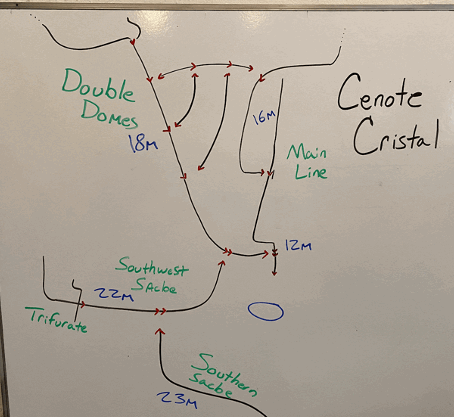 Double
Domes
18M
16M
Cenote
Cristal
Main
Line
12M
Southwest
Sacbe
22M
Trifurate
Southern
Sacbe
23M